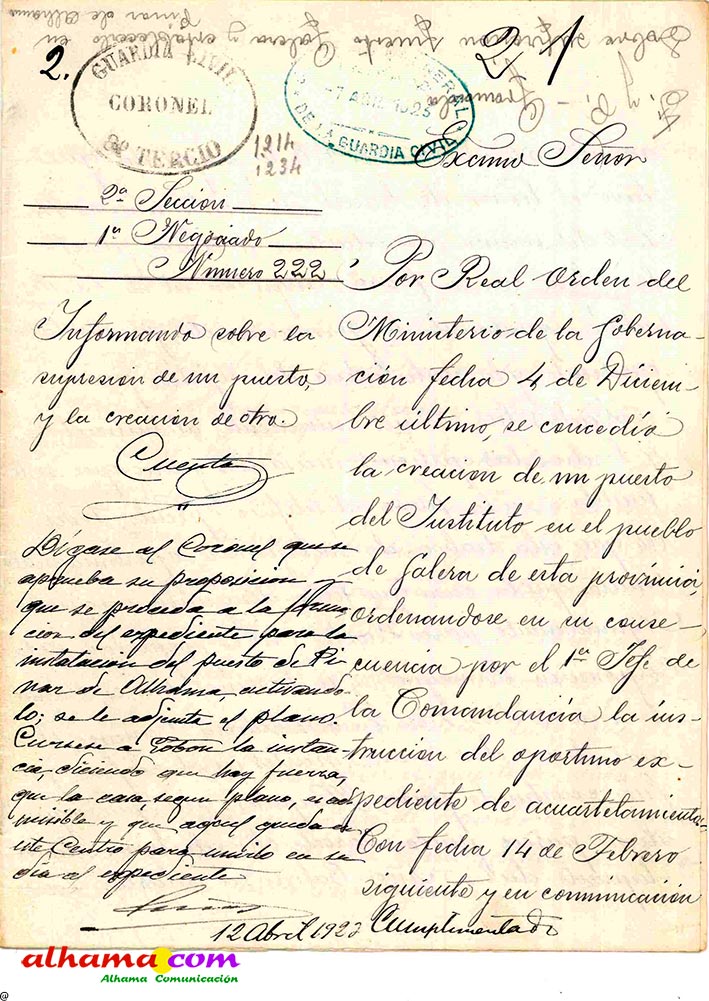 Sobre supresion puesto Galera y establecerlo en
Pinar de Alhama
E. y P. - Granada
2.
2 1
GUARDIA CIVIL
CORONEL
8º TERCIO
GENERAL
7 ABR 1925
DE LA GUARDIA CIVIL
1214
1234
Excmo Señor
2ª Seccion
1er Negociado
Número 222
Informando sobre la
supresion de un puesto,
y la creacion de otro.
Cuenta
Dígase al Coronel que se
aprueba su proposicion y
que se proceda a la forma-
cion del expediente para la
instalación del puesto de Pi
nar de Alhama, activando
lo; se le adjunte el plano.
Cursese a Gobon la instan-
cia, diciendo que hay fuerza,
que la casa, segun plano, es ad
misible y que aquel queda en
este Centro para unirlo en su
dia al expediente
12 Abril 192
Cumplimentado
Por Real orden del
Ministerio de la Goberna-
ción fecha 4 de Diciem-
bre último, se concedió
la creacion de un puesto
del Instituto en el pueblo
de Galera de esta provincia,
ordenandose en su conse-
cuencia por el 1er Jefe de
la Comandancia la ins-
truccion del oportuno ex-
pediente de acuartelamiento.
Con fecha 14 de Febrero
siguiente y en comunicación
alhama.com
Alhama Comunicación
@